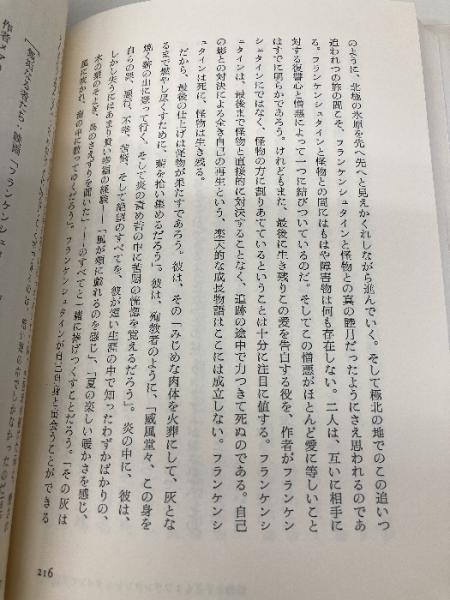 のように、北極の氷原を先へ先へと見えかくれしながら進んでいく。そして極北の地でのこの追いつ
追われつの旅の間こそ、フランケンシュタインと怪物との真の睦月だったようにさえ思われるのであ
る。フランケンシュタインと怪物との間にはもはや障害物は何も存在しない。二人は、互いに相手に
対する復讐心と憎悪によって一つに結びついているのだ。そしてこの憎悪がほとんど愛に等しいこと
はすでに明らかであろう。けれどもまた、最後に生き残りこの愛を告白する役を、作者がフランケン
シュタインにではなく、怪物の方に割りあてているということは十分に注目に値する。フランケンシ
ュタインは、最後まで怪物と直接的に対決することなく、追跡の途中で力つきて死ぬのである。自己
の影との対決による全き自己の再生という、楽天的な成長物語はここには成立しない。フランケンシ
ュタインは死に、怪物は生き残る。
だから、最後の仕上げは怪物が果たすであろう。彼は、その「みじめな肉体を火葬にして、灰とな
るまで燃やし尽くすために、薪を拾い集めるだろう」。彼は、殉教者のように、「威風堂々、この身を
焼く薪の山に登って行く。そして炎の責め苦の中に苦悶の恍惚を覚えるだろう」。炎の中に、彼は、
自らの罪、悪行、不幸、苦悩、そして絶望のすべてを、彼が短い生涯の中で知ったわずかばかりの、
しかし失うにはあまり貴い幸福の経験――「風が頬に戯れるのを感じ」、「夏の楽しい暖かさを感じ、
木の葉のそよぎ、鳥のさえずりを聞いた」――のすべてと一緒に捧げつくすことだろう。「その灰は
風に吹かれ、海の中に散ってゆくだろう」。フランケンシュタインが自己自身と出会うことができる
「無垢なる者たち
映画「フランケンシュ
216